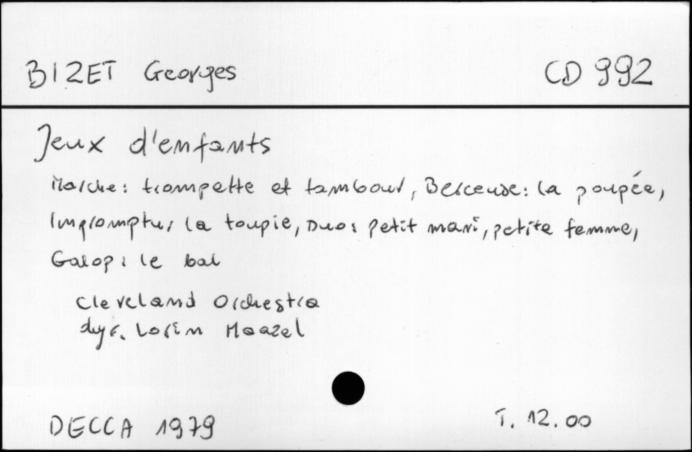 BIZET Georges CD 992
Jeux d'enfants
Marche: trompette et tambour, Berceuse: la poupée,
Impromptu: la toupie, Duo: petit mari, petite femme,
Galop: le bal
Cleveland Orchestra
dyr. Lorin Maazel
DECCA 1979 T. 12.00